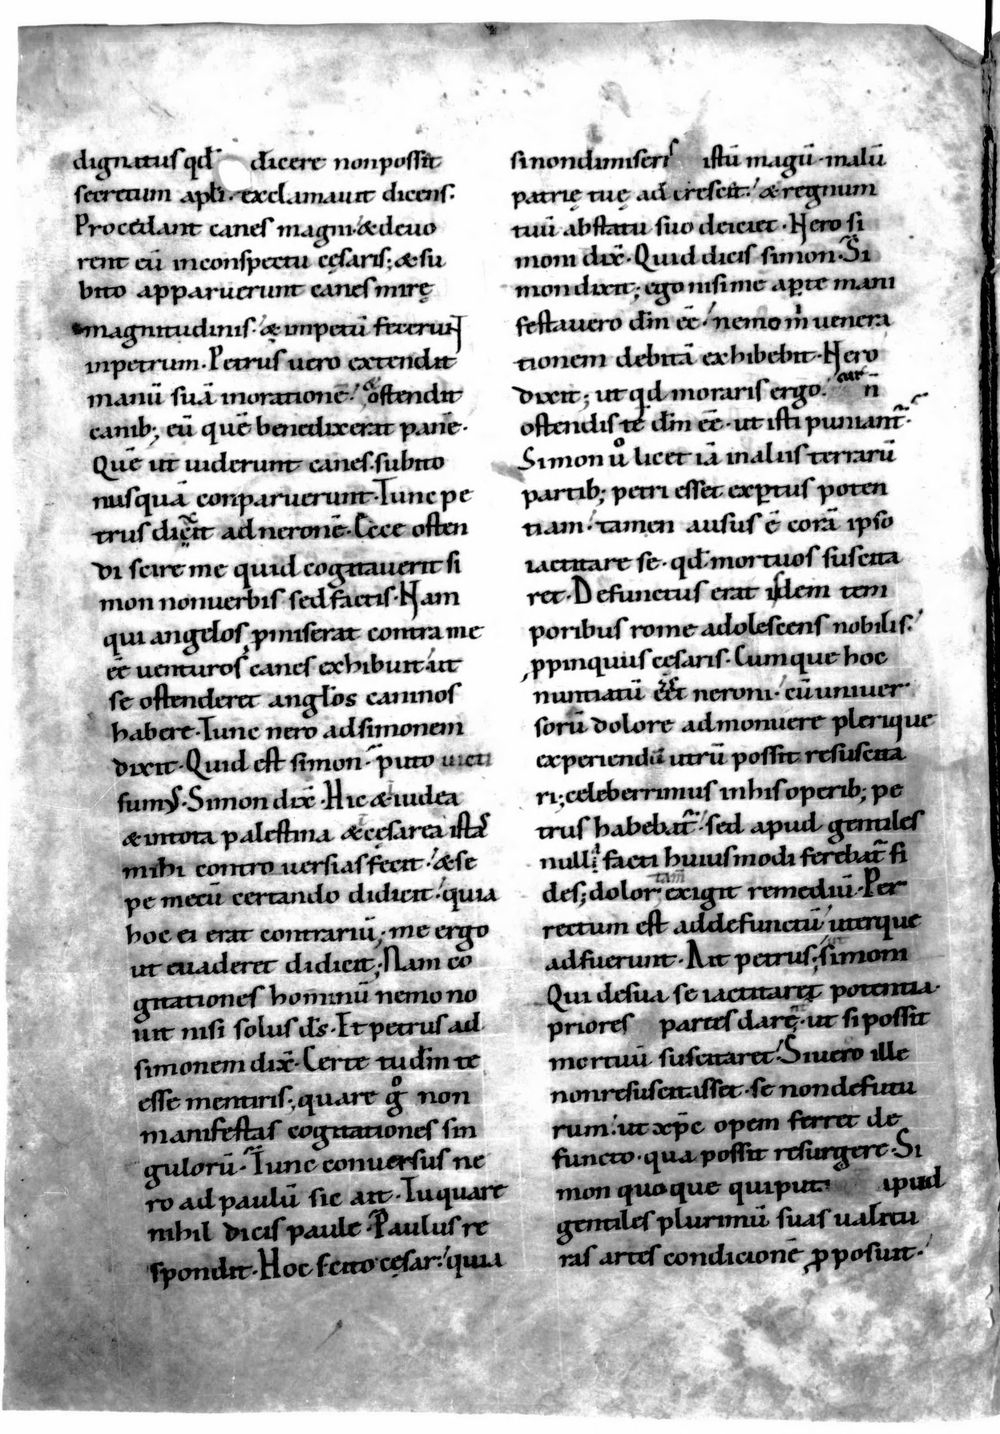 dignatus qđ dicere non possit
secretum apľi· exclamauit dicens·
Procedant canes magni· & deuo
rent eū in conspectu cęsaris; & su
bito apparuerunt canes mirę
magnitudinis· & impetū fecerunt
in petrum· Petrus uero extendit
manū suā in oratione· & ostendit
canib; eū quē benedixerat panē·
Quē ut uiderunt canes· subito
nusquā conparuerunt· Tunc pe
trus dicit ad neronē· Ecce osten
di scire me quid cogitauerit si
mon non uerbis sed factis· Nam
qui angelos pmiserat contra me
eē venturos canes exhibuit· ut
se ostenderet angľos caninos
habere· Tunc nero ad simonem
dixit· Quid est simon· puto uicti
sumus· Simon dix̄· Hic & iudea
& in tota palestina & cęsarea ista
mihi controuersias fecit· & se
pe mecū certando didicit· quia
hoc ei erat contrariū; me ergo
ut euaderet didicit; Nam co
gitationes hominū nemo no
uit nisi solus d̄s· Et petrus ad
simonem dix̄· Certe tu dm̄ te
esse mentiris; quare g° non
manifestas cogitationes sin
gulorū· Tunc conuersus ne
ro ad paulū sic ait· Tu quare
nihil dicis paule· Paulus re
spondit· Hoc scito cęsar· quia
si non dimiseris istū magū· malū
patrię tuę ad crescit· & regnum
tuū ab statu suo deiciet· Nero si
moni dix̄· Quid dicis simon· Si
mon dixit; ego nisi me apte mani
festauero dm̄ eē· nemo m̄ uenera
tionem debitā exhibebit· Nero
dixit; ut qd moraris ergo· cur n̄
ostendis te dm̄ eē· ut isti puniant̄·
Simon ů licet iā in aliis terrarū
partib; petri esset exptus poten
tiam· tamen ausus ē corā ipso
iactitare se· qđ mortuos suscita
ret· Defunctus erat isdem tem
poribus rome adolescens nobilis·
ppinquus cęsaris· Cumque hoc
nuntiatū eēt neroni· cū uniuer
sorū dolore admonuere plerique
experiendū utrū possit resuscita
ri; celeberrimus in his operib; pe
trus habebat̄· sed apud gentiles
nulla facti huiusmodi ferebat̄ fi
des; dolor tam̄ exigit remediū· Per
rectum est ad defunctū· uterque
adfuerunt· Ait petrus; simoni
Qui de sua se iactitaret potentia·
priores partes darę· ut si possit
mortuū suscitaret· Si uero ille
non resuscitasset· se non defutu
rum· ut xp̄c opem ferret de
functo· qua possit resurgere· Si
mon quoque qui put apud
gentiles plurimū suas ualitu
ras artes condicionē pposuit·